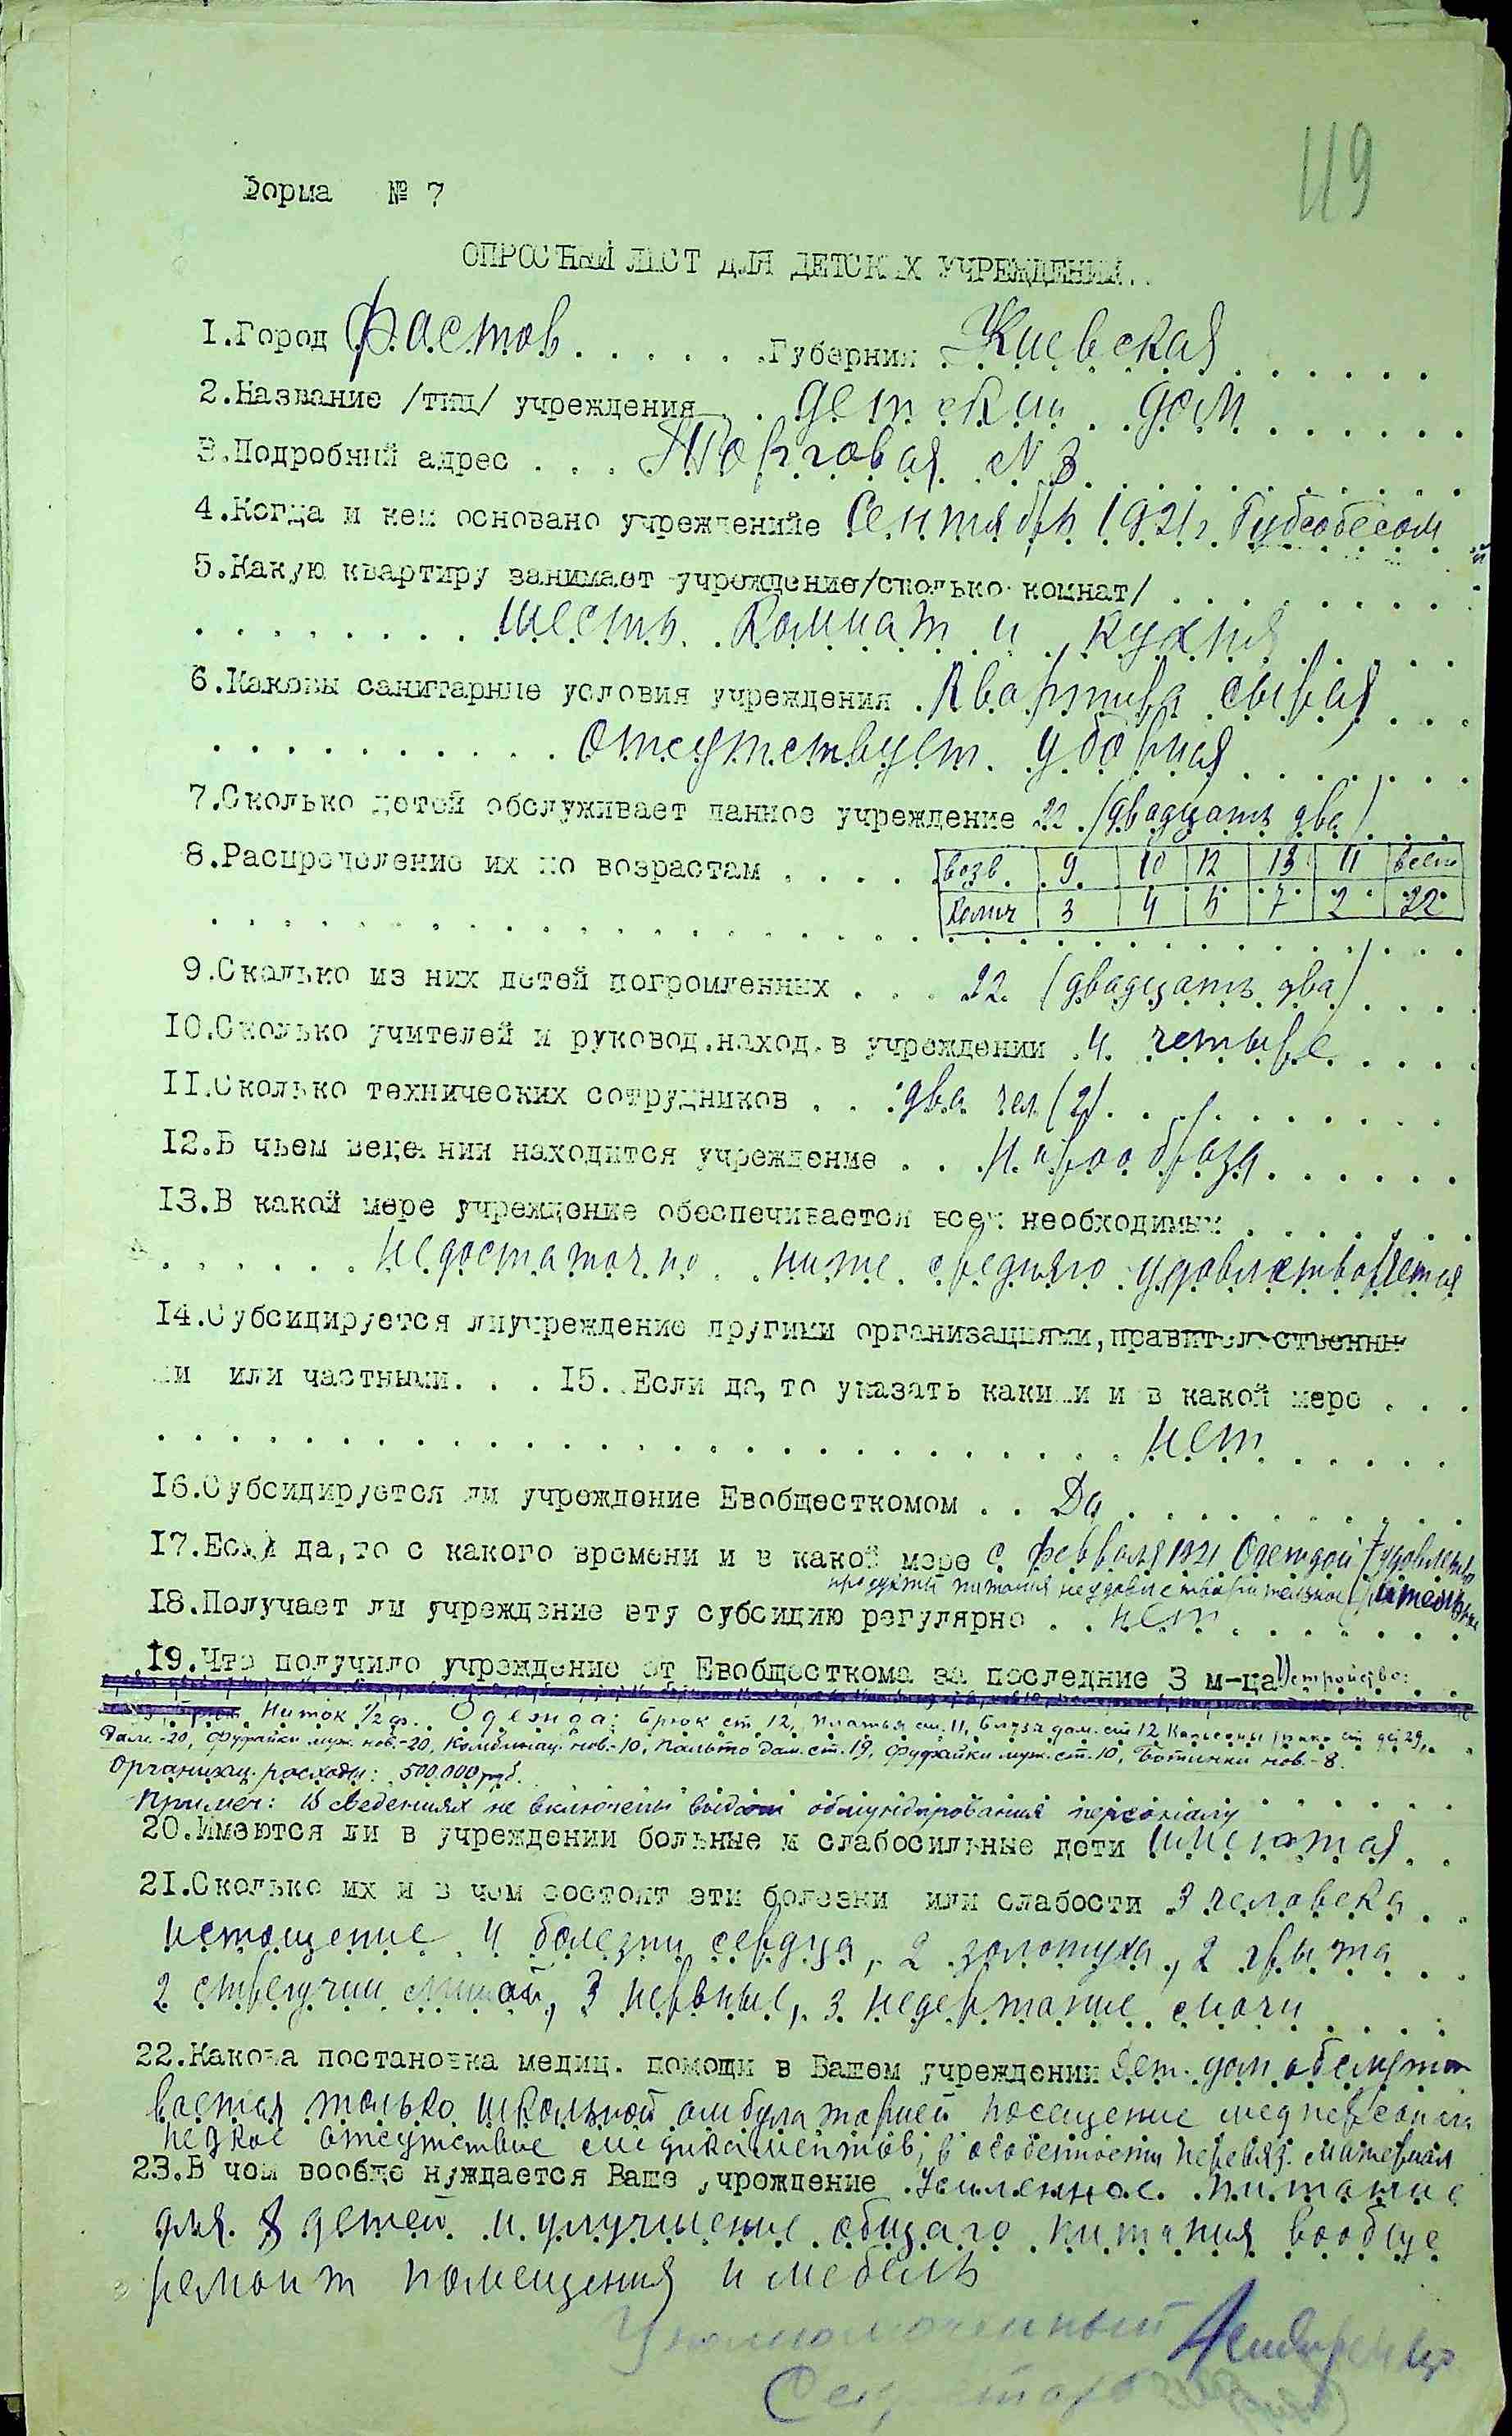 119
Форма № 7
ОПРОСНЫЙ ЛИСТ ДЛЯ ДЕТСКИХ УЧРЕЖДЕНИЙ..
1.Город Фастов. . . . . .Губерния Киевская . . . . . .
2.Название /тип/ учреждения. . детский дом . . . . . .
3.Подробный адрес . . . Торговая № 3 . . . . . . . . . .
4.Когда и кем основано учреждениие Сентябрь 1921 г. Губсобесом
5.Какую квартиру занимает учреждение/сколько комнат/ . . . . . . . .
. . . . . . . . шесть комнат и кухня . . . . .
6.Каковы санитарные условия учреждения . Квартира сырая . . .
. . . . . . . . . . Отсутствует уборная . . . . . .
7.Сколько детей обслуживает данное учреждение 22 /двадцать два/ . . .
8.Распределение их по возрастам . . . . возр. 9 10 12 13 11 Всего
Колич 3 4 6 7 2 22
9.Сколько из них детей погромленных . . . 22. (двадцать два) . . . .
10.Сколько учителей и руковод.наход.в учреждении .4. четыре . . . .
11.Сколько технических сотрудников . . . два чел (2). . . . . . . . .
12.В чьем ведении находится учреждение . . Наробраза . . . . . .
13.В какой мере учреждение обеспечивается всем необходимым . . . . . . .
. . . . . . недостаточно. ниже средняго удовлетворяется
14.Субсидируется лиучреждение другими организациями,правительственны
ми или частными. . . 15. Если да,то указать какими и в какой мере . . .
. . . . . . . . . . . . . . . . . . . . . . . . . . нет . . . . . .
16.Субсидируется ли учреждение Евобщесткомом . . Да . . . . . . . . . .
17.Если да,то с какого времени и в какой мере с февраля 1921 Одеждой удовлетво
рительно
продукты питания неудовлетворительное
18.Получает ли учреждение эту субсидию регулярно . . нет . . . . . . .
19.Что получило учреждение от Евобщесткома за последние 3 м-ца
Ниток 1/2 ф. Одежда: Брюк ст. 12, Платья ст. 11, Блузы дам. ст 12, Кальсоны
дам.-20, Фуфайки муж. нов.-20, Комбинац. нов.-10, Пальто дам. ст. 19, Фуфайки муж. ст. 10, Ботинки нов.-8.
Организац. расходы: 500.000 руб.
Примеч: В сведениях не включены выдачи обмундирования персоналу
20.Имеются ли в учреждении больные и слабосильные дети имеются. .
21.Сколько их и в чем состоят эти болезни или слабости 3 человека . .
истощение 4 болезни сердца, 2 золотуха, 2 грыжа . .
2 стригучий лишай, 3 нервные, 3 недержание мочи . . . .
22.Какова постановка медиц. помощи в Вашем учреждении Дет. дом обслужи
вается только школьной амбулаторией посещение медперсонала
редкое отсутствие медикаментов, в особенности перевяз. материал
23.В чем вообще нуждается Ваше учреждение . Усиленное питание
для 8 детей и улучшение общаго питания вообще
ремонт помещения и мебель
Уполномоченный
Секретарь